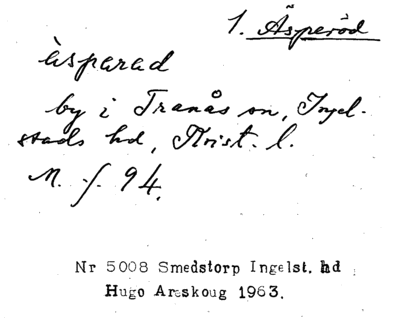 1. Äsperöd
àsparad
by i Tranås sn, Ingel-
stads hd, Krist. l.
M. f. 94.
Nr 5008 Smedstorp Ingelst. hd
Hugo Areskoug 1963.